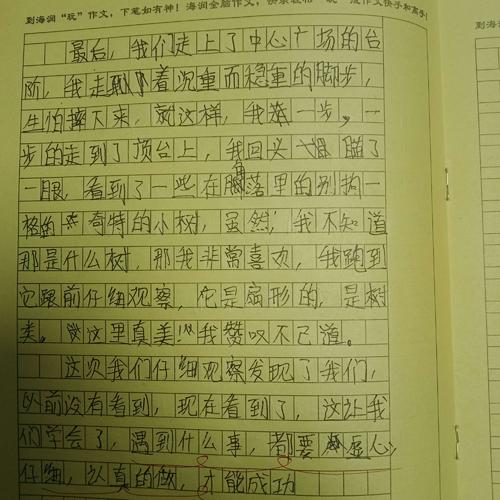 到海润“玩”作文，下笔如有神！海润全脑作文，快乐轻松“玩”成作文快手和高手！
最后，我们走上了中心广场的台
阶，我走到了着沉重而稳重的脚步，
生怕摔下来，就这样，我一步，一
步的走到了顶台上，我回头瞄了
一眼，看到了一些在角落里的别拘一
格的奇特的小树，虽然，我不知道
那是什么树，那我非常喜欢，我跑到
它跟前仔细观察，它是扇形的，是树
类。“这里真美！”我赞叹不已道。
这次我们仔细观察发现了我们，
以前没有看到，现在看到了，这让我
们学会了，遇到什么事，都要虚心，
仔细，认真的做，才能成功
到海